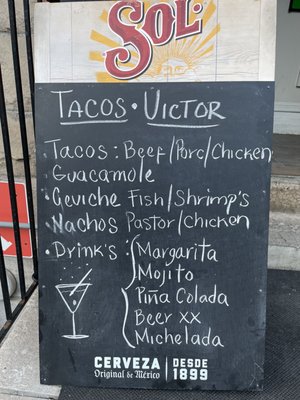 SOL
TACOS • VICTOR
Tacos: Beef/Porc/Chicken
Guacamole
• Ceviche Fish/Shrimp's
• Nachos Pastor/Chicken
• Drink's: Margarita
Mojito
Piña Colada
Beer XX
Michelada
CERVEZA DESDE
Original de México 1899